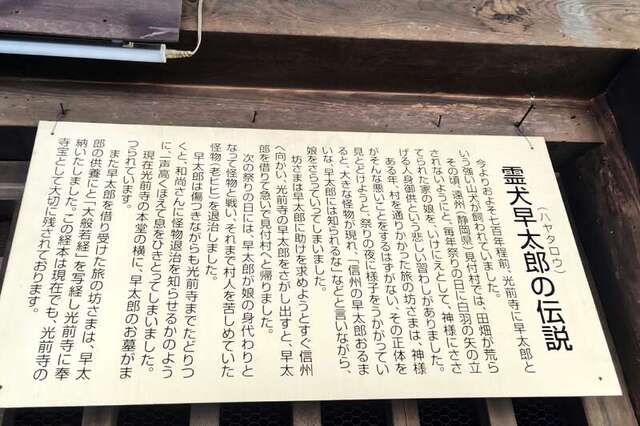 霊犬早太郎の伝説
(ハヤタロウ)
今よりおよそ七百年程前、光前寺に早太郎と
いう強い山犬が飼われていました。
その頃、遠州(静岡県)見付村では、田畑が荒ら
されないようにと、毎年祭りの日に白羽の矢の立
てられた家の娘を、いけにえとして、神様にささ
げる人身御供という悲しい習わしがありました。
ある年、村を通りかかった旅の坊さまは、神様
がそんな悪いことをするはずがない、その正体を
見とどけようと、祭りの夜に様子をうかがってい
ると、大きな怪物が現れ、「信州の早太郎おるま
いな、早太郎には知られるな」などと言いながら、
娘をさらっていってしまいました。
坊さまは早太郎に助けを求めようとすぐ信州
へ向かい、光前寺の早太郎をさがし出すと、早太
郎を借りて急いで見付村へと帰りました。
次の祭りの日には、早太郎が娘の身代わりと
なって怪物と戦い、それまで村人を苦しめていた
怪物(老ヒヒ)を退治しました。
早太郎は傷つきながらも光前寺までたどりつ
くと、和尚さんに怪物退治を知らせるかのよう
に、一声高くほえて息をひきとってしまいました。
現在光前寺の本堂の横に、早太郎のお墓がま
つられています。
また早太郎を借り受けた旅の坊さまは、早太
郎の供養にと「大般若経」を写経し光前寺に奉
納いたしました。この経本は現在でも、光前寺の
寺宝として大切に残されております。